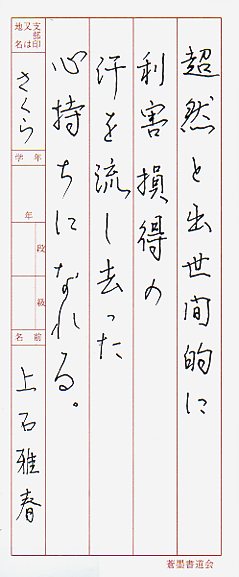 超然と出世間的に
利害損得の
汗を流し去った
心持ちになれる。
支部印
又は
地名
さくら
学年
年
段
級
名前
上石雅春
蒼墨書道会